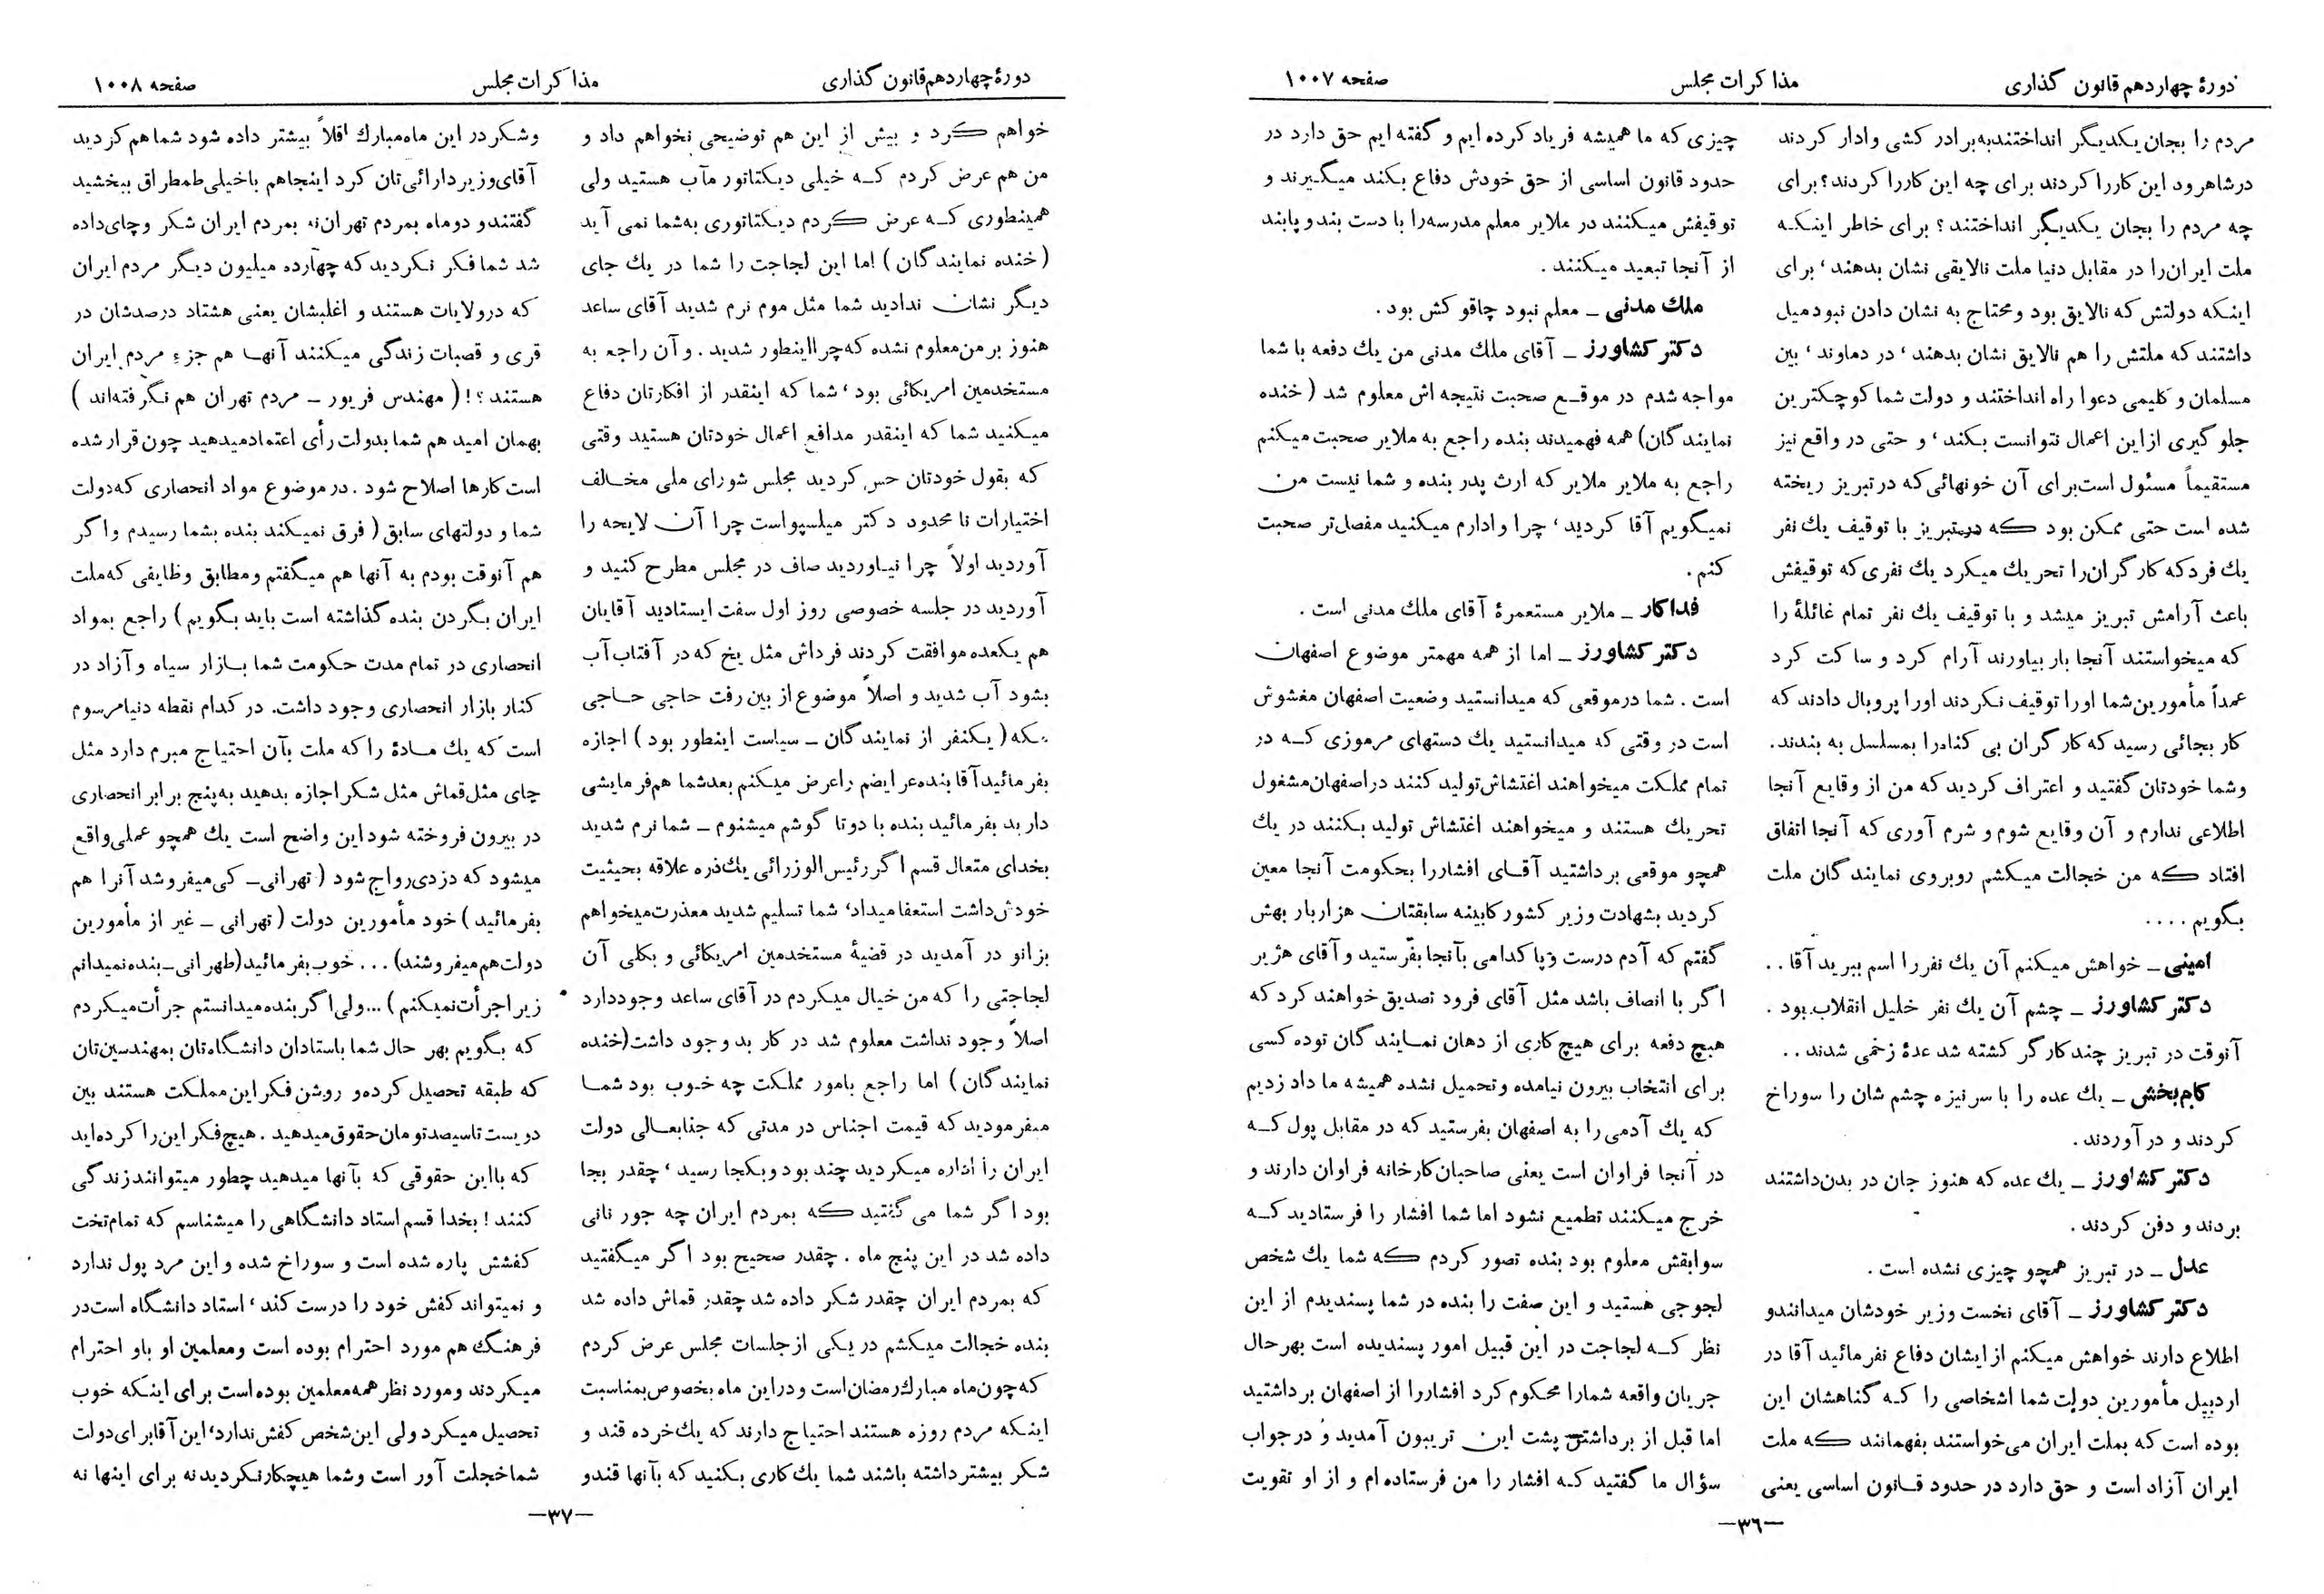 دورهٔ چهاردهم قانون گذاری
مذاکرات مجلس
صفحه ۱۰۰۷
مردم را بجان یکدیگر انداختند به برادر کشی وادار کردند
در شاهرود این کار را کردند برای چه این کار را کردند؟ برای
چه مردم را بجان یکدیگر انداختند؟ برای خاطر اینکه
ملت ایران را در مقابل دنیا ملت نالایقی نشان بدهند، برای
اینکه دولتش که نالایق بود و محتاج به نشان دادن نبود میل
داشتند که ملتش را هم نالایق نشان بدهند، در دماوند، بین
مسلمان و کلیمی دعوا راه انداختند و دولت شما کوچکترین
جلوگیری از این اعمال نتوانست بکند، و حتی در واقع نیز
مستقیماً مسئول است برای آن خونهائی که در تبریز ریخته
شده است حتی ممکن بود که در تبریز با توقیف یك نفر
یك فرد که کارگران را تحریك میکرد یك نفری که توقیفش
باعث آرامش تبریز میشد و با توقیف یك نفر تمام غائلهٔ را
که میخواستند آنجا بار بیاورند آرام کرد و ساکت کرد
عمداً مأمورین شما اورا توقیف نکردند اورا پروبال دادند که
کار بجائی رسید که کارگران بی گناه را بمسلسل به بندند.
و شما خودتان گفتید و اعتراف کردید که من از وقایع آنجا
اطلاعی ندارم و آن وقایع شوم و شرم آوری که آنجا اتفاق
افتاد که من خجالت میکشم روبروی نمایندگان ملت
بگویم ....
امینی ـ خواهش میکنم آن یك نفر را اسم ببرید آقا..
دکتر کشاورز ـ چشم آن یك نفر خلیل انقلاب بود.
آنوقت در تبریز چند کارگر کشته شد عدهٔ زخمی شدند..
کام‌بخش ـ یك عده را با سر نیزه چشم شان را سوراخ
کردند و در آوردند.
دکتر کشاورز ـ یك عده که هنوز جان در بدن داشتند
بردند و دفن کردند.
عدل ـ در تبریز همچو چیزی نشده است.
دکتر کشاورز ـ آقای نخست وزیر خودشان میدانند و
اطلاع دارند خواهش میکنم از ایشان دفاع نفرمائید آقا در
اردبیل مأمورین دولت شما اشخاصی را که گناهشان این
بوده است که بملت ایران می‌خواستند بفهمانند که ملت
ایران آزاد است و حق دارد در حدود قانون اساسی یعنی
چیزی که ما همیشه فریاد کرده ایم و گفته ایم حق دارد در
حدود قانون اساسی از حق خودش دفاع بکند میگیرند و
توقیفش میکنند در ملایر معلم مدرسه را با دست بند و پابند
از آنجا تبعید میکنند.
ملك مدنی ـ معلم نبود چاقو کش بود.
دکتر کشاورز ـ آقای ملك مدنی من یك دفعه با شما
مواجه شدم در موقع صحبت نتیجه اش معلوم شد (خنده
نمایندگان) همه فهمیدند بنده راجع به ملایر صحبت میکنم
راجع به ملایر ملایر که ارث پدر بنده و شما نیست من
نمیگویم آقا کردید، چرا وادارم میکنید مفصل‌تر صحبت
کنم.
فداکار ـ ملایر مستعمرهٔ آقای ملك مدنی است.
دکتر کشاورز ـ اما از همه مهمتر موضوع اصفهان
است. شما در موقعی که میدانستید وضعیت اصفهان مغشوش
است در وقتی که میدانستید یك دستهای مرموزی که در
تمام مملکت میخواهند اغتشاش تولید کنند در اصفهان مشغول
تحریك هستند و میخواهند اغتشاش تولید بکنند در یك
همچو موقعی برداشتید آقای افشار را بحکومت آنجا معین
کردید بشهادت وزیر کشور کابینه سابقتان هزار بار بهش
گفتم که آدم درست و پاکدامی بآنجا بفرستید و آقای هژیر
اگر با انصاف باشد مثل آقای فرود تصدیق خواهند کرد که
هیچ دفعه برای هیچ کاری از دهان نمایندگان توده کسی
برای انتخاب بیرون نیامده و تحمیل نشده همیشه ما داد زدیم
که یك آدمی را به اصفهان بفرستید که در مقابل پول که
در آنجا فراوان است یعنی صاحبان کارخانه فراوان دارند و
خرج میکنند تطمیع نشود اما شما افشار را فرستادید که
سوابقش معلوم بود بنده تصور کردم که شما یك شخص
لجوجی هستید و این صفت را بنده در شما پسندیدم از این
نظر که لجاجت در این قبیل امور پسندیده است بهر حال
جریان واقعه شما را محکوم کرد افشار را از اصفهان برداشتید
اما قبل از برداشتن پشت این تریبون آمدید و در جواب
سؤال ما گفتید که افشار را من فرستاده ام و از او تقویت
—۳۶—
دورهٔ چهاردهم قانون گذاری
مذاکرات مجلس
صفحه ۱۰۰۸
خواهم کرد و بیش از این هم توضیحی نخواهم داد و
من هم عرض کردم که خیلی دیکتاتور مآب هستید ولی
همینطوری که عرض کردم دیکتاتوری به شما نمی آید
(خنده نمایندگان) اما این لجاجت را شما در یك جای
دیگر نشان ندادید شما مثل موم نرم شدید آقای ساعد
هنوز بر من معلوم نشده که چرا اینطور شدید. و آن راجع به
مستخدمین امریکائی بود، شما که اینقدر از افکارتان دفاع
میکنید شما که اینقدر مدافع اعمال خودتان هستید وقتی
که بقول خودتان حس کردید مجلس شورای ملی مخالف
اختیارات نامحدود دکتر میلسپو است چرا آن لایحه را
آوردید اولاً چرا نیاوردید صاف در مجلس مطرح کنید و
آوردید در جلسه خصوصی روز اول سفت ایستادید آقایان
هم یکعده موافقت کردند فرداش مثل یخ که در آفتاب آب
بشود آب شدید و اصلاً موضوع از بین رفت حاجی حاجی
مکه (یکنفر از نمایندگان ـ سیاست اینطور بود) اجازه
بفرمائید آقا بنده عرایضم را عرض میکنم بعد شما هم فرمایشی
دارید بفرمائید بنده با دوتا گوشم میشنوم ـ شما نرم شدید
بخدای متعال قسم اگر رئیس الوزرائی یك ذره علاقه بحیثیت
خودش داشت استعفا میداد، شما تسلیم شدید معذرت میخواهم
بزانو در آمدید در قضیهٔ مستخدمین امریکائی و بکلی آن
لجاجتی را که من خیال میکردم در آقای ساعد وجود دارد
اصلاً وجود نداشت معلوم شد در کار بد وجود داشت (خنده
نمایندگان) اما راجع بامور مملکت چه خوب بود شما
میفرمودید که قیمت اجناس در مدتی که جنابعالی دولت
ایران را اداره میکردید چند بود و بکجا رسید، چقدر بجا
بود اگر شما می گفتید که بمردم ایران چه جور نانی
داده شد در این پنج ماه. چقدر صحیح بود اگر میگفتید
که بمردم ایران چقدر شکر داده شد چقدر قماش داده شد
بنده خجالت میکشم در یکی از جلسات مجلس عرض کردم
که چون ماه مبارك رمضان است و در این ماه بخصوص بمناسبت
اینکه مردم روزه هستند احتیاج دارند که یك خرده قند و
شکر بیشتر داشته باشند شما یك کاری بکنید که بآنها قند و
و شکر در این ماه مبارك اقلاً بیشتر داده شود شما هم کردید
آقای وزیر دارائی‌تان کرد اینجا هم با خیلی طمطراق ببخشید
گفتند و دو ماه بمردم تهران نه بمردم ایران شکر و چای داده
شد شما فکر نکردید که چهارده میلیون دیگر مردم ایران
که در ولایات هستند و اغلبشان یعنی هشتاد درصدشان در
قری و قصبات زندگی میکنند آنها هم جزء مردم ایران
هستند؟! (مهندس فریور ـ مردم تهران هم نگرفته‌اند)
بهمان امید هم شما بدولت رأی اعتماد میدهید چون قرار شده
است کارها اصلاح شود. در موضوع مواد انحصاری که دولت
شما و دولتهای سابق (فرق نمیکند بنده بشما رسیدم واگر
هم آنوقت بودم به آنها هم میگفتم و مطابق وظایفی که ملت
ایران بگردن بنده گذاشته است باید بگویم) راجع بمواد
انحصاری در تمام مدت حکومت شما بازار سیاه و آزاد در
کنار بازار انحصاری وجود داشت. در کدام نقطه دنیا مرسوم
است که یك مادهٔ را که ملت بآن احتیاج مبرم دارد مثل
چای مثل قماش مثل شکر اجازه بدهید به پنج برابر انحصاری
در بیرون فروخته شود این واضح است یك همچو عملی واقع
میشود که دزدی رواج شود (تهرانی ـ کی میفروشد آنرا هم
بفرمائید) خود مأمورین دولت (تهرانی ـ غیر از مأمورین
دولت هم میفروشند) ... خوب بفرمائید (طهرانی ـ بنده نمیدانم
زیرا جرأت نمیکنم) ... ولی اگر بنده میدانستم جرأت میکردم
که بگویم بهر حال شما باستادان دانشگاه‌تان بمهندسین‌تان
که طبقه تحصیل کرده و روشن فکر این مملکت هستند بین
دویست تا سیصد تومان حقوق میدهید. هیچ فکر این را کرده‌اید
که با این حقوقی که بآنها میدهید چطور میتوانند زندگی
کنند! بخدا قسم استاد دانشگاهی را میشناسم که تمام تخت
کفشش پاره شده است و سوراخ شده و این مرد پول ندارد
و نمیتواند کفش خود را درست کند، استاد دانشگاه است در
فرهنگ هم مورد احترام بوده است و معلمین او باو احترام
میکردند و مورد نظر همه معلمین بوده است برای اینکه خوب
تحصیل میکرد ولی این شخص کفش ندارد، این آقا برای دولت
شما خجلت آور است و شما هیچکار نکردید نه برای اینها نه
—۳۷—